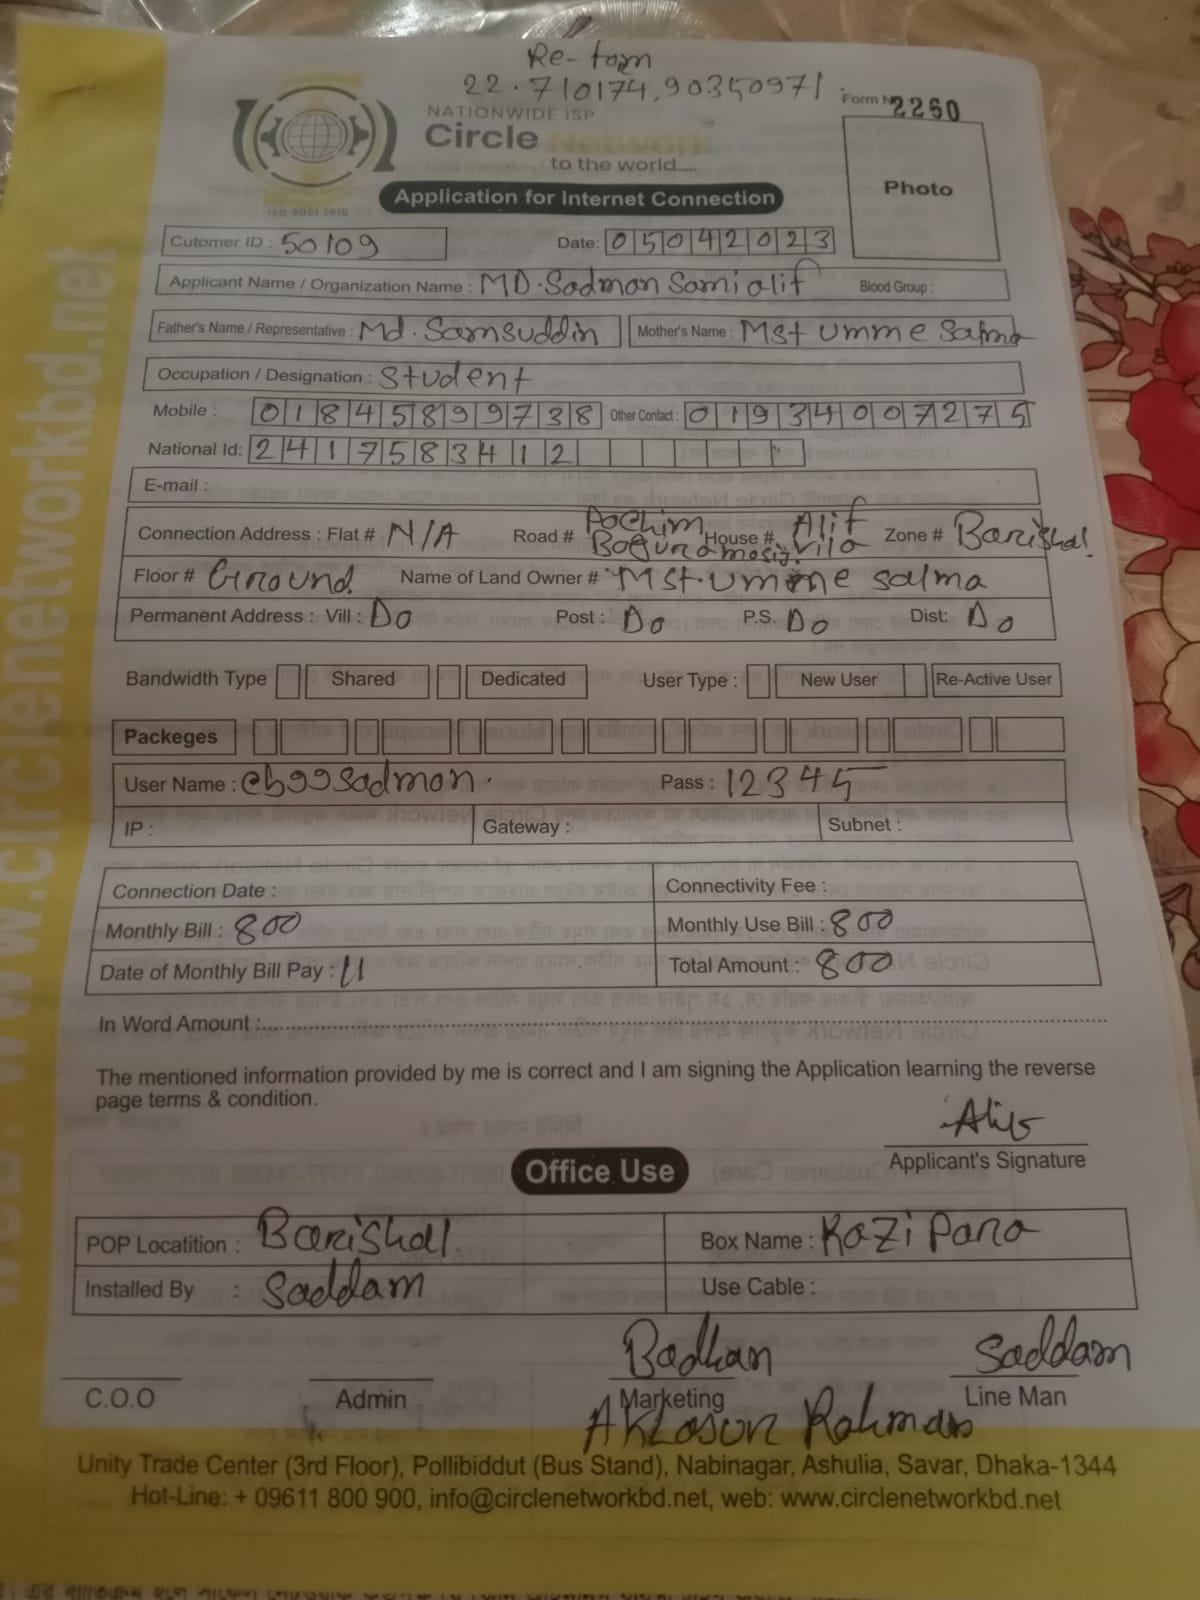 Re-form
22.710174,90350971
NATIONWIDE ISP
Form N 2260
Circle Network
to the world.....
Photo
Application for Internet Connection
ISO 9001 2015
Cutomer ID : 50109 Date: 05042023
Applicant Name / Organization Name : MD.Sadman Sami alif Blood Group :
Father's Name / Representative : Md. Samsuddin Mother's Name : Mst Umme Salma
Occupation / Designation : Student
Mobile : 01845899738 Other Contact : 01934007275
National Id: 2417583412
E-mail :
Connection Address : Flat # N/A Road # Pochim Boguramosjg House # Alif Vila Zone # Barishal
Floor # Ground Name of Land Owner # Mst.Umme Salma
Permanent Address : Vill : Do Post : Do P.S. Do Dist: Do
Bandwidth Type Shared Dedicated User Type : New User Re-Active User
Packeges
User Name : cb99sadman Pass : 12345
IP : Gateway : Subnet :
Connection Date : Connectivity Fee :
Monthly Bill : 800 Monthly Use Bill : 800
Date of Monthly Bill Pay : 11 Total Amount : 800
In Word Amount :
The mentioned information provided by me is correct and I am signing the Application learning the reverse
page terms & condition.
Alif
Applicant's Signature
Office Use
POP Locatition : Barishal Box Name : Kazi Para
Installed By : Saddam Use Cable :
Badhan Saddam
C.O.O Admin Marketing Line Man
Rahman
Unity Trade Center (3rd Floor), Pollibiddut (Bus Stand), Nabinagar, Ashulia, Savar, Dhaka-1344
Hot-Line: + 09611 800 900, info@circlenetworkbd.net, web: www.circlenetworkbd.net
www.circlenetworkbd.net